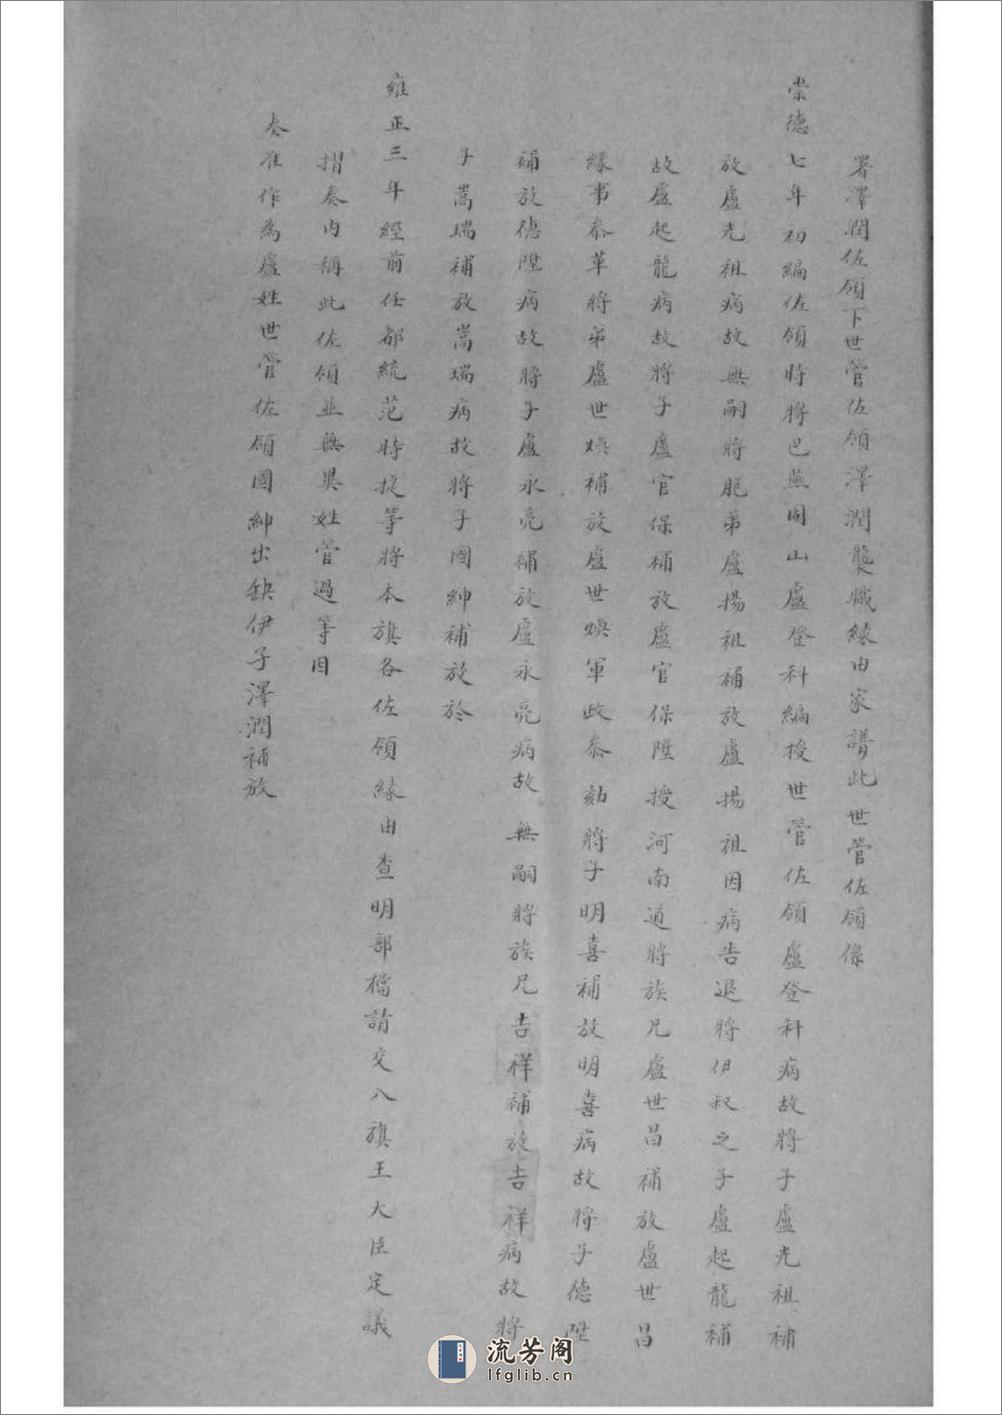 署澤潤佐領下世管佐領澤潤襲職緣由家譜此世管佐領係
崇德七年初編佐領時將巴燕同山盧登科編授世管佐領盧登科病故將子盧光祖補
放盧光祖病故無嗣將胞弟盧揚祖補放盧揚祖因病告退將伊叔之子盧起龍補
故盧起龍病故將子盧官保補放盧官保陞授河南道將族兄盧世昌補放盧世昌
緣事叅革將弟盧世煥補放盧世煥軍政叅劾將子明喜補放明喜病故將子德陞
補放德陞病故將子盧永亮補放盧永亮病故無嗣將族兄吉祥補放吉祥病故將
子嵩瑞補放嵩瑞病故將子國紳補放於
雍正三年經前任都統范時捷等將本旗各佐領緣由查明部檔請交八旗王大臣定議
摺奏內稱此佐領並無異姓管過等因
奏准作為盧姓世管佐領國紳出缺伊子澤潤補放
流芳阁
lfglib.cn